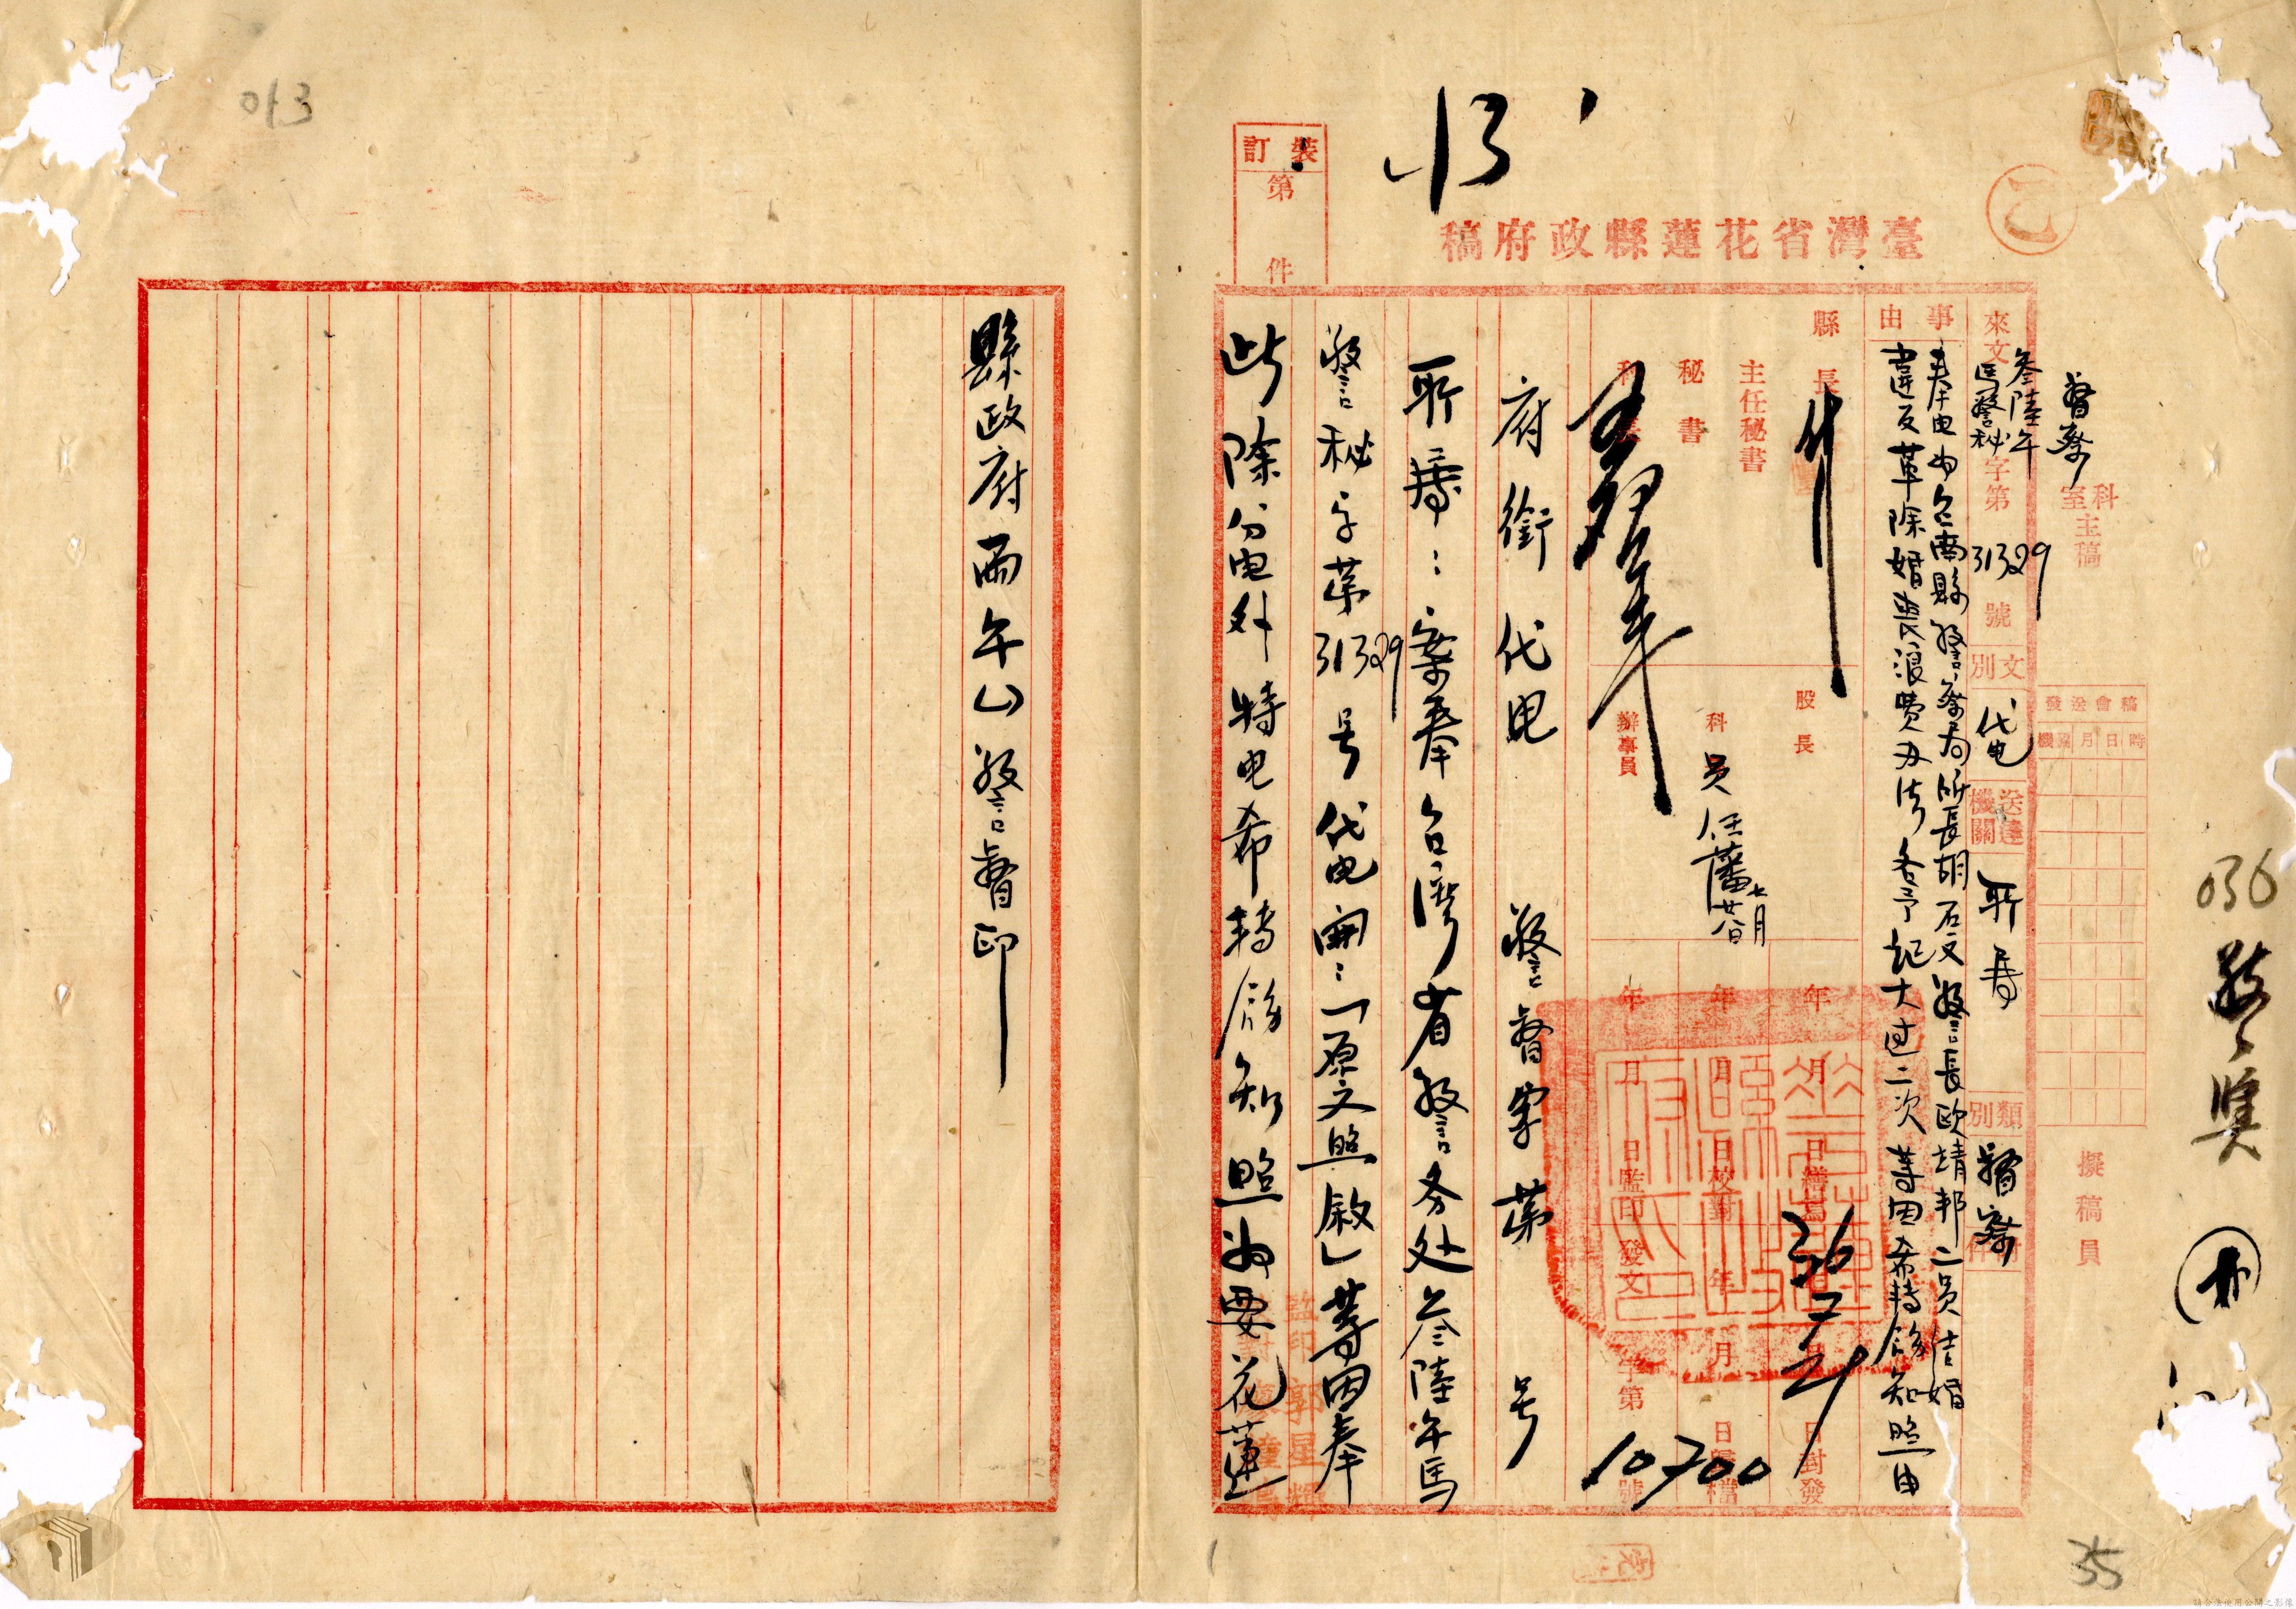 013
13
訂裝
第
件
臺灣省花蓮縣政府稿
督察
科室主稿
來文
叁陸年
馬警秘
字第
31329
號
文別
代电
送達機關
所局
類別
督察
事由
奉电为台南縣警察局所長胡石文警長欧靖邦二員结婚
違反革除婚喪浪费办法各予記大过二次等因希轉飭知照由
稿會送發
時日月機關
擬稿員
036
35
縣長
主任秘書
秘書
科長
股長
科員
任藩
七月
廿日
辦事員
年月日繕寫
年月日校對
年月日監印
月日封發
年月日歸檔
發文
字第
號
36
10700
府銜代电 警督字第 号
所局:案奉台灣省警务处叁陸年馬
警秘字第31329号代电開:「原文照敘」等因奉
此除分电外特电希轉飭知照为要花蓮
縣政府丙午山警督印
監印郭星輝